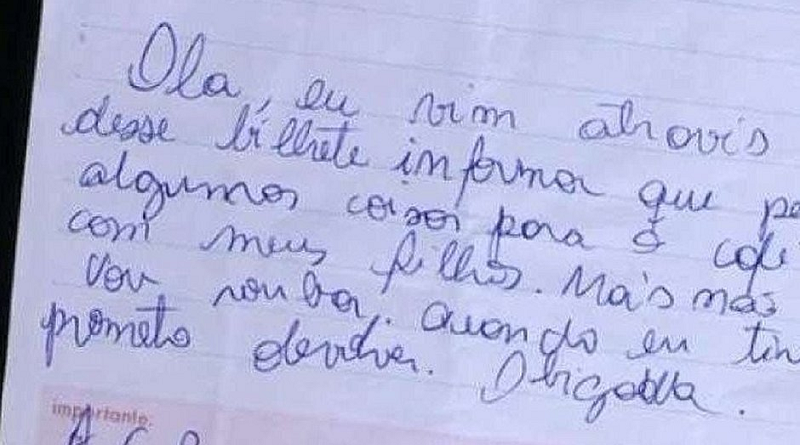 Ola, eu vim através
desse bilhete informar que pe
algumas coisas para o cafe
com meus filhos. Mais mas
vou rouba. Quando eu tin
prometo devolver. Obigada.
importante: